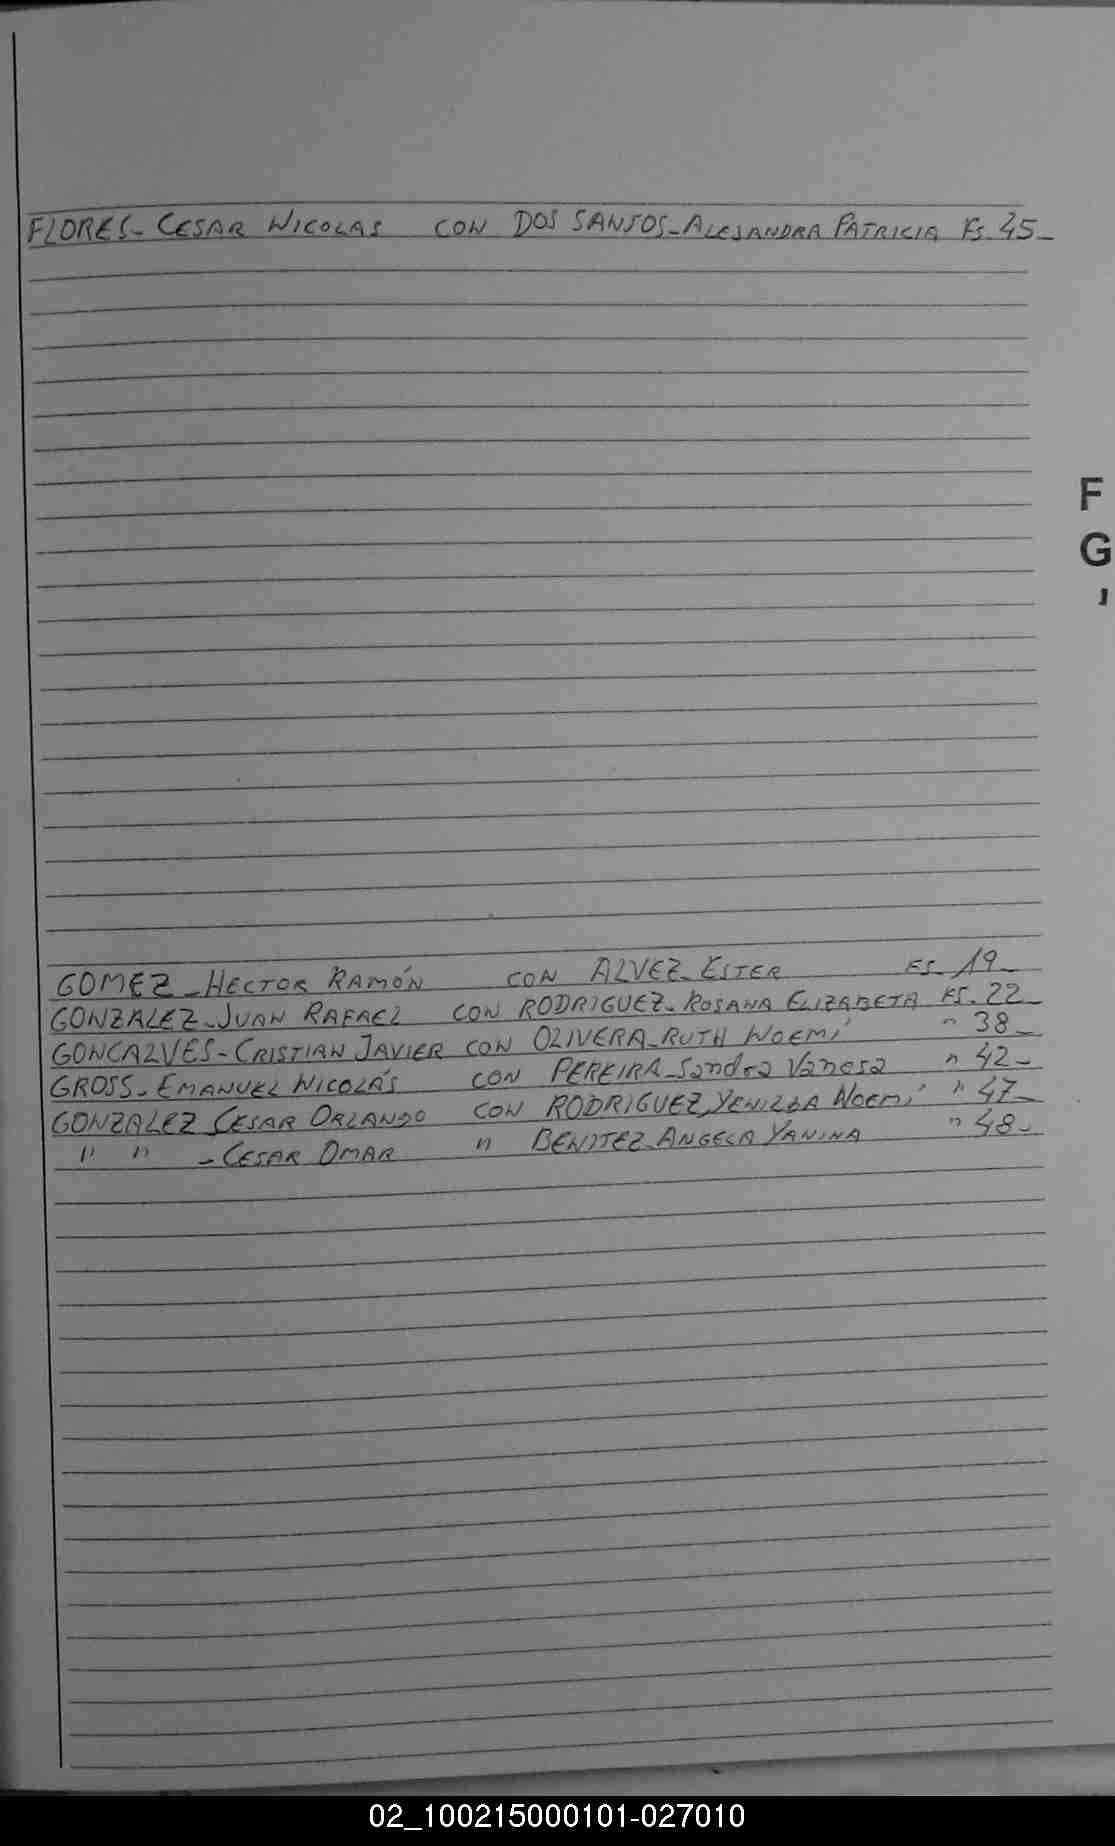 FLORES - CESAR NICOLAS CON DOS SANTOS - ALEJANDRA PATRICIA Fs. 45 -
F
G
GOMEZ - HECTOR RAMÓN CON ALVEZ - ESTER FS. 19 -
GONZALEZ - JUAN RAFAEL CON RODRIGUEZ - ROSANA ELIZABETA FS. 22 -
GONCALVES - CRISTIAN JAVIER CON OLIVERA - RUTH NOEMÍ " 38 -
GROSS - EMANUEL NICOLÁS CON PEREIRA - Sandra Vanesa " 42 -
GONZALEZ CESAR ORLANDO CON RODRIGUEZ, NOEMÍ " 47 -
" " - CESAR OMAR " BENITEZ - ANGELA YANINA " 48 -
02_100215000101-027010